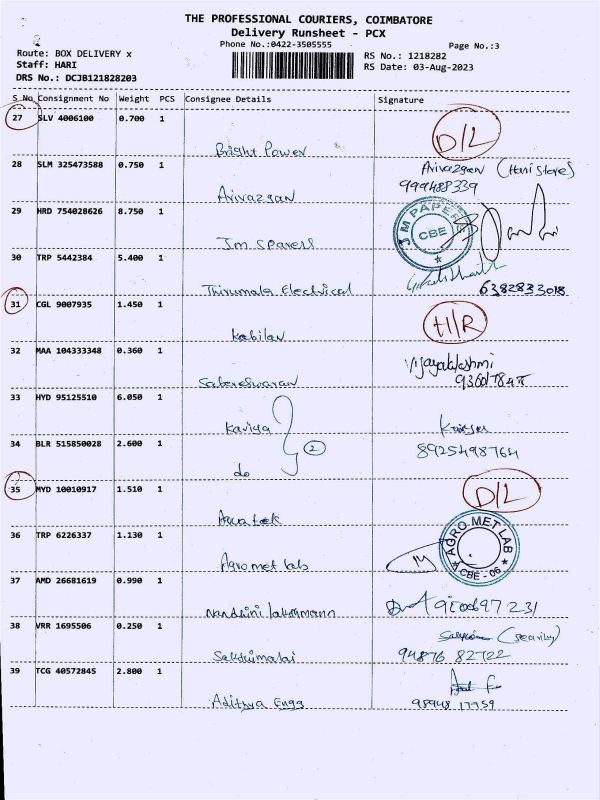 THE PROFESSIONAL COURIERS, COIMBATORE
Delivery Runsheet - PCX
Phone No.:0422-3505555
Page No.:3
Route: BOX DELIVERY x
Staff: HARI
DRS No.: DCJB121828203
RS No.: 1218282
RS Date: 03-Aug-2023
S No Consignment No Weight PCS Consignee Details Signature
27 SLV 4006100 0.700 1 D/L
Bright Power
28 SLM 325473588 0.750 1 Arivazgan (Hani Store)
Arivazgan 999488339
29 HRD 754028626 8.750 1 J M PAPERS CBE
Jm spares
30 TRP 5442384 5.400 1
Thirumala Electrical 6382833018
31 CGL 9007935 1.450 1 H/R
Kabilan
32 MAA 104333348 0.360 1 Vijayalakshmi
Sabareswaran
33 HYD 95125510 6.050 1
Kaviya 2 8925498764
34 BLR 515850028 2.600 1
do
35 MYD 10010917 1.510 1 D/L
Aqua tek
36 TRP 6226337 1.130 1 AGRO MET LAB CBE - 06
Agro met lab
37 AMD 26681619 0.990 1
Nandhini lakshmann
38 VRR 1695506 0.250 1 (Security)
Sakthimalai 94876 82722
39 TCG 40572845 2.800 1
Adithya Engg 98948 17759